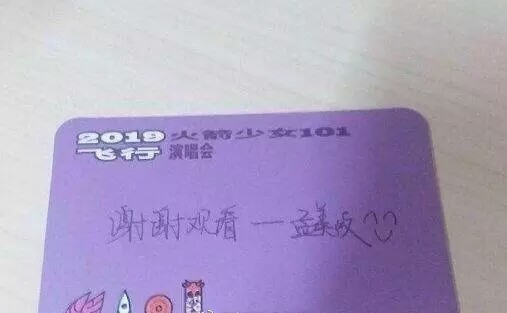 2019 火箭少女101
飞行 演唱会
谢谢观看 — 孟美岐